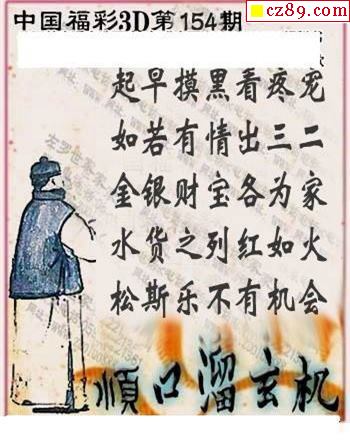 cz89.com
中国福彩3D第154期
起早摸黑看疼宠
如若有情出三二
金银财宝各为家
水货之列红如火
松斯乐不有机会
顺口溜玄机